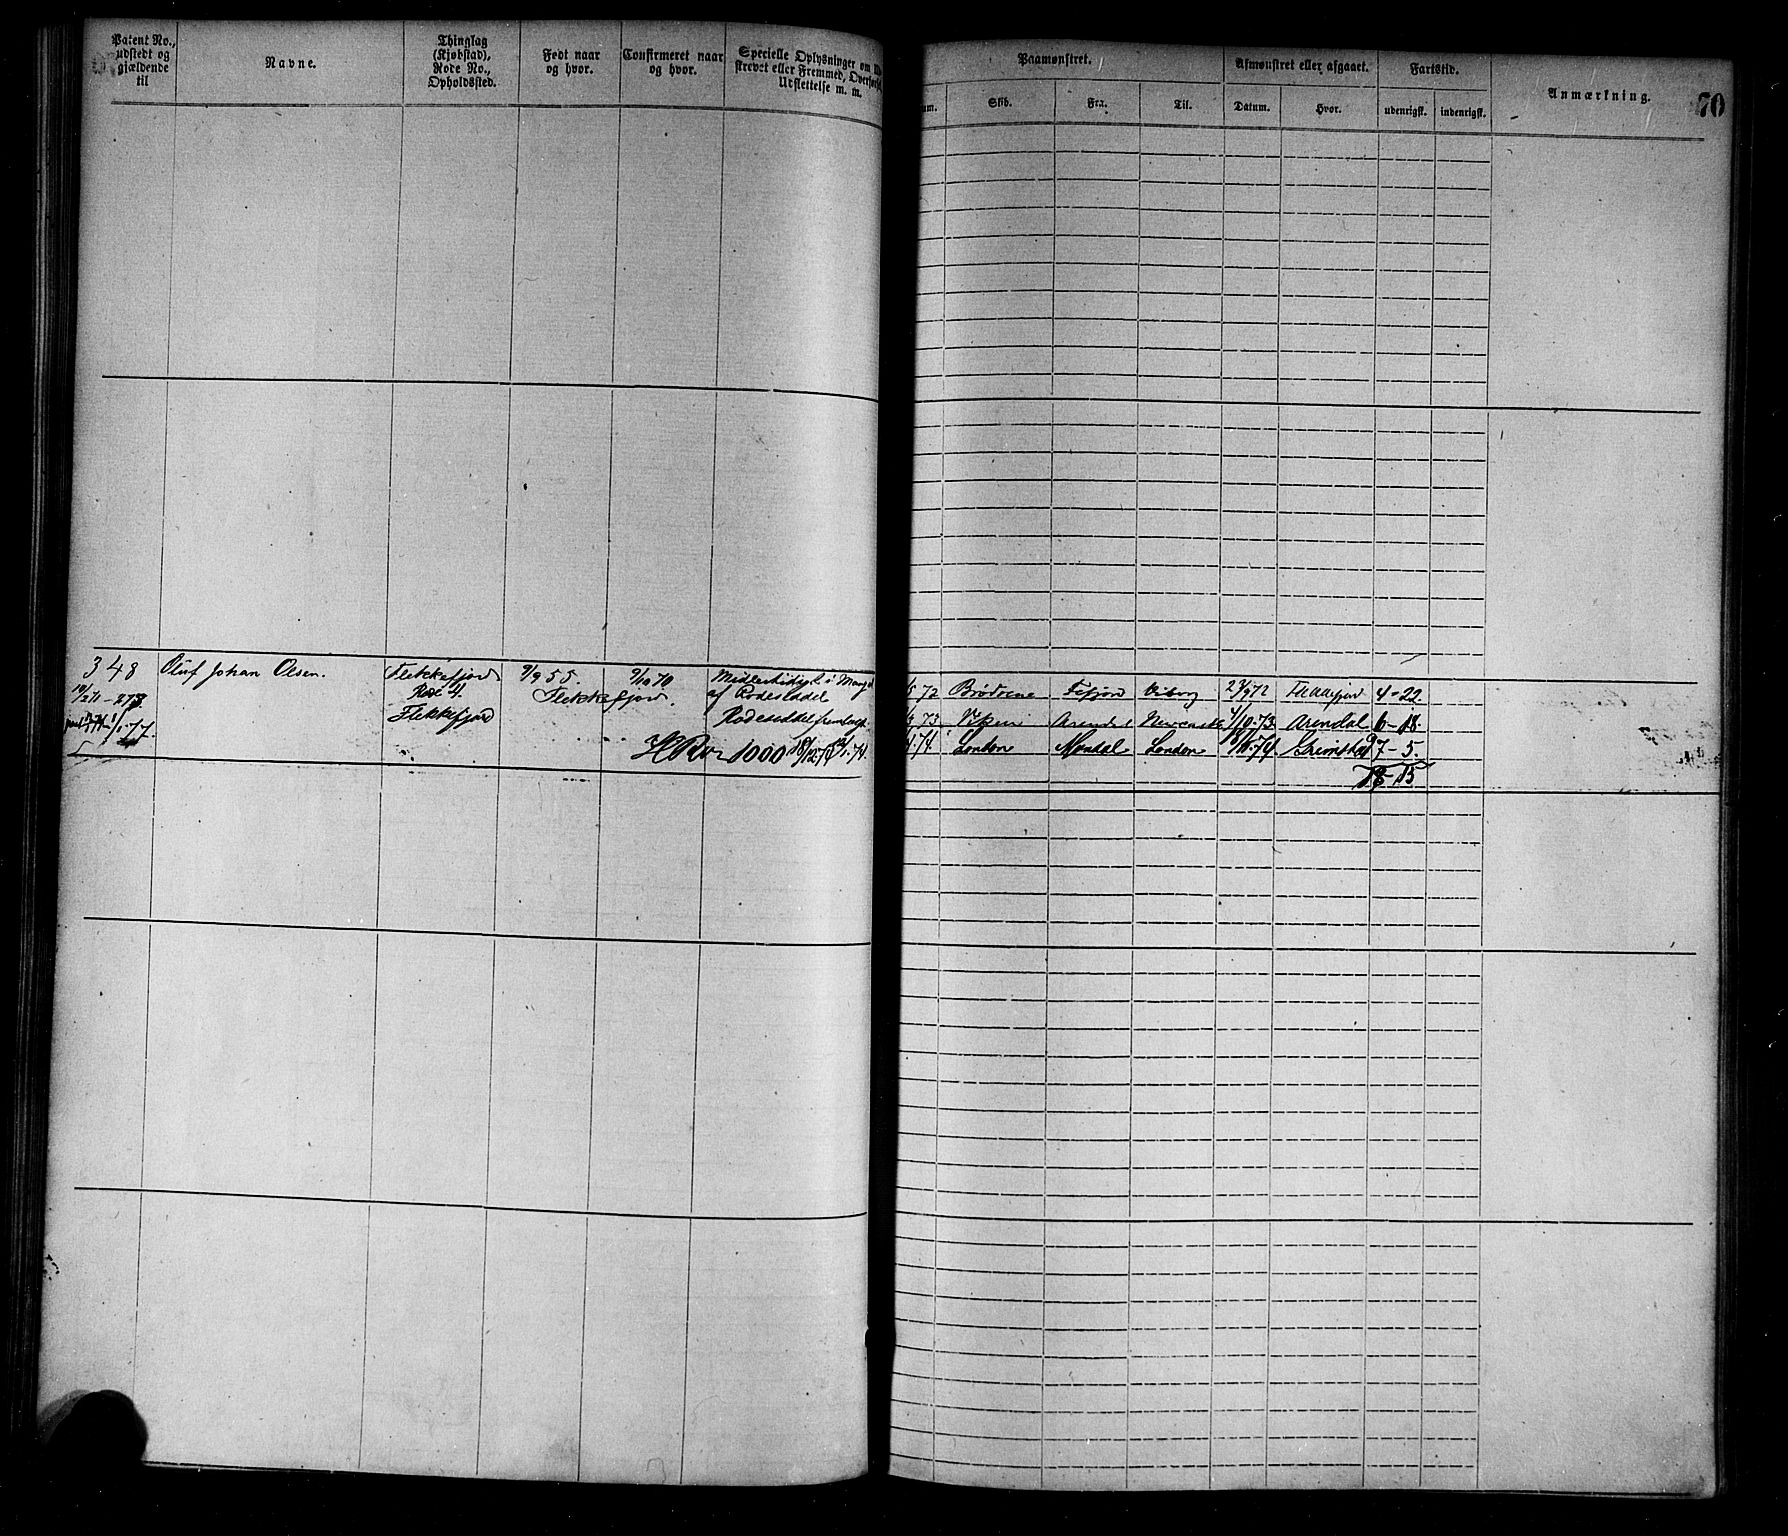 Patent No.,
udstedt og
gjældende
til
Navne.
Thinglag
(Kjøbstad),
Rode No.,
Opholdssted.
Født naar
og hvor.
Confirmeret naar
og hvor.
Specielle Oplysninger om
skrevet eller Fremmed,
Udslettelse m. m.
348
Oluf Johan Olsen.
Flekkefjord
Rode 4.
Flekkefjord
9/9 55
Flekkefjord.
9/10 70
Midlertidigt i Mangel
af Rodeseddel
Rodeseddel fremlagt
1000
Paamønstret.
Afmønstret eller afgaaet.
Fartstid.
Anmærkning.
70
Skib.
Fra.
Til.
Datum.
Hvor.
udenrigsk.
indenrigsk.
72 Brødrene Ffjord Viborg Flekkefjord 4-22
73 Arendal 4/10.73 Arendal 6-18.
74. London Mandal London Grimstad 7-5.
18-15